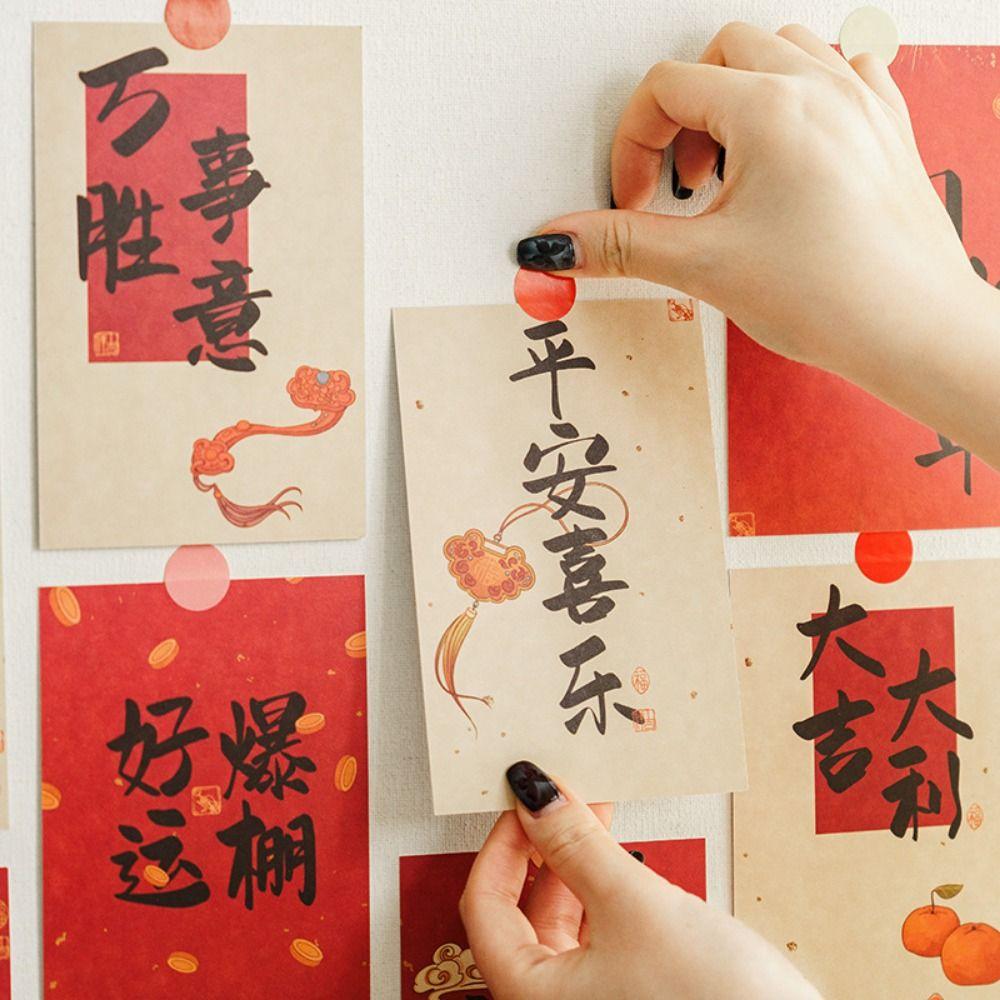 万事
胜意
平安喜乐
好运
爆棚
大吉
大利
福